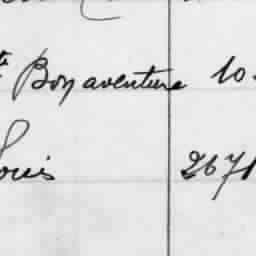 te Bonaventure 10
Louis 2671